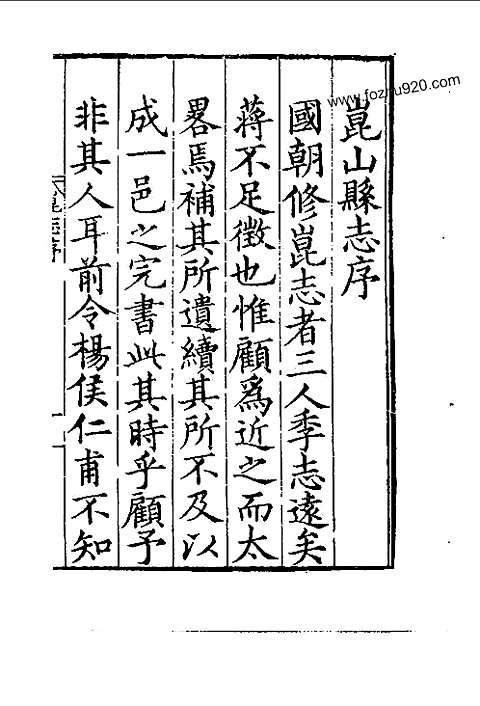 崑山縣志序
國朝修崑志者三人季志遠矣
蔣不足徵也惟顧為近之而太
畧焉補其所遺續其所不及以
成一邑之完書此其時乎顧予
非其人耳前令楊侯仁甫不知